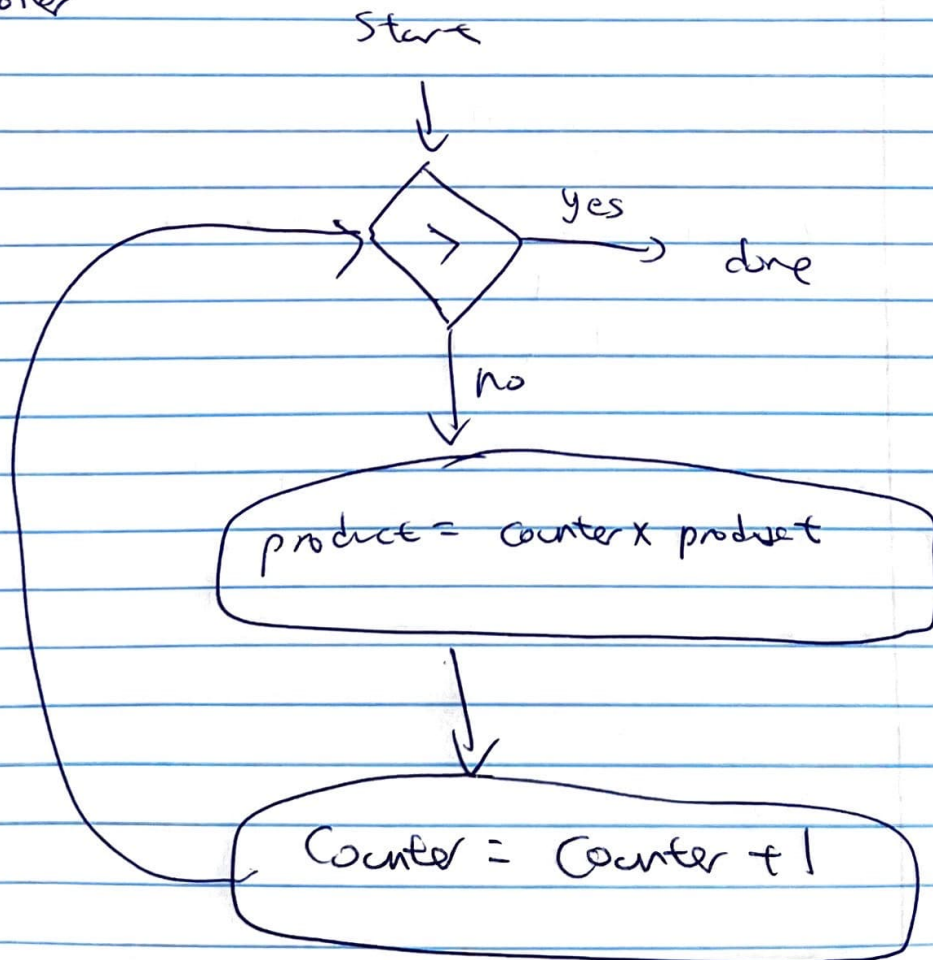 Start
>
yes
done
no
product = counter x product
Counter = Counter + 1